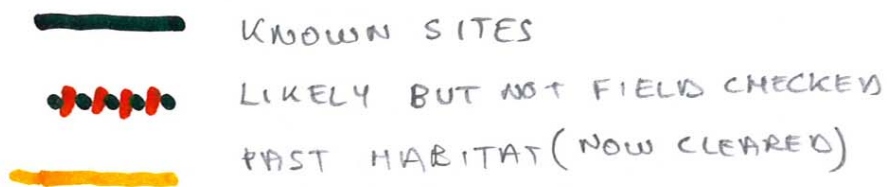 KNOWN SITES
LIKELY BUT NOT FIELD CHECKED
PAST HABITAT (NOW CLEARED)